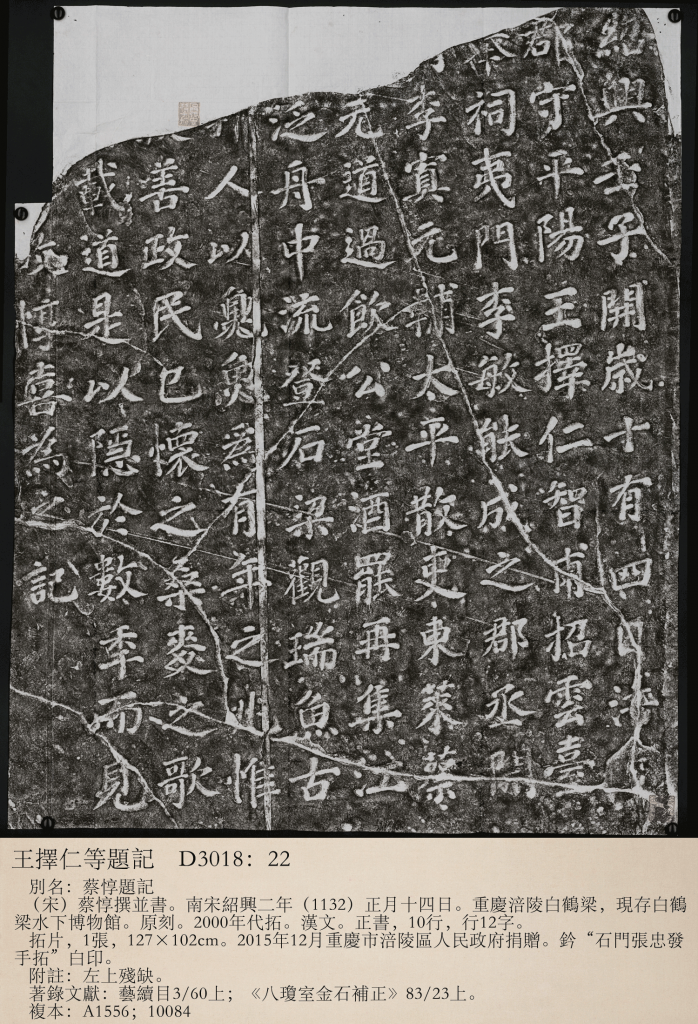 紹興壬子開歲十有四日涪
郡守平陽王擇仁智甫招雲臺
奉祠夷門李敏能成之郡丞開
李寘元輔太平散吏東萊蔡
元道過飲公堂酒罷再集江
泛舟中流登石梁觀瑞魚古
人以魚爲有年之兆惟
善政民已懷之桑麥之歌
載道是以隱於數年而見
惇喜為之記
王擇仁等題記　D3018：22
別名：蔡惇題記
（宋）蔡惇撰並書。南宋紹興二年（1132）正月十四日。重慶涪陵白鶴梁，現存白鶴
梁水下博物館。原刻。2000年代拓。漢文。正書，10行，行12字。
拓片，1張，127×102cm。2015年12月重慶市涪陵區人民政府捐贈。鈐“石門張忠發
手拓”白印。
附註：左上殘缺。
著錄文獻：藝續目3/60上；《八瓊室金石補正》83/23上。
複本：A1556；10084